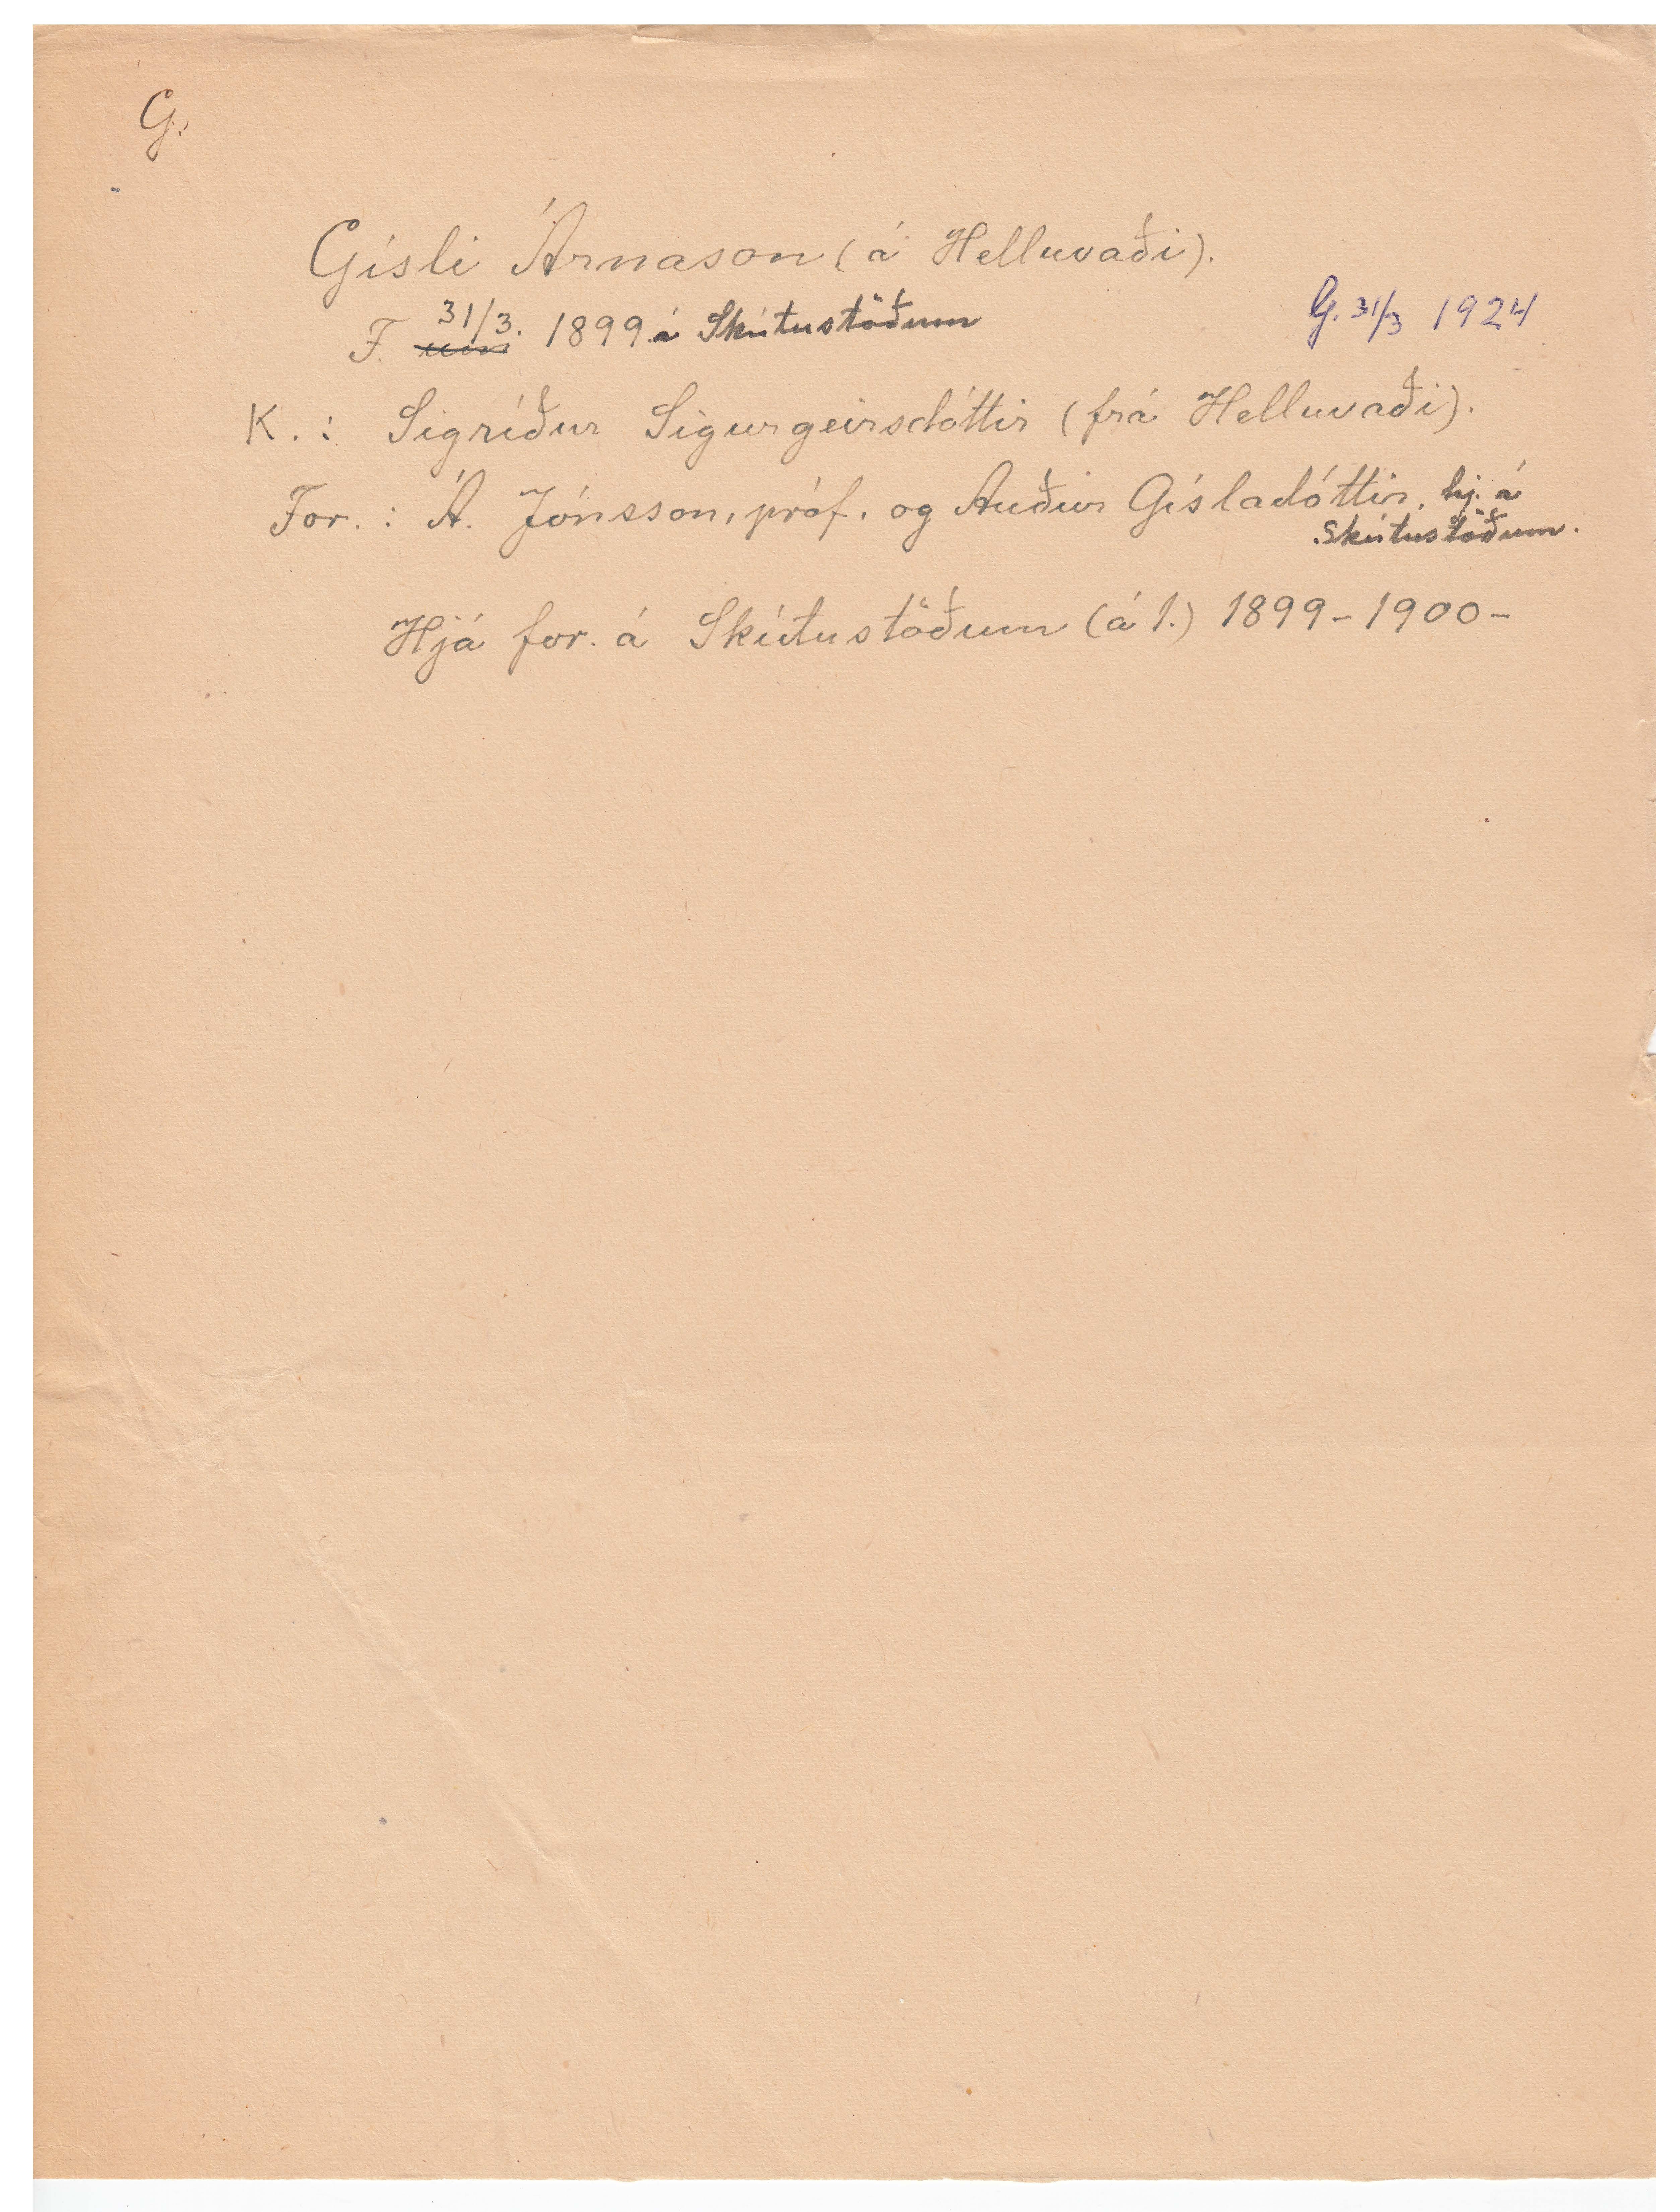 G.
Gísli Árnason (á Helluvaði).
F. 31/3. um 1899 á Skútustöðum
G. 31/3 1924
K. : Sigríður Sigurgeirsdóttir (frá Helluvaði).
For. : Á. Jónsson, próf. og Auður Gísladóttir, hj. á
Skútustöðum.
Hjá for. á Skútustöðum (á 1.) 1899-1900-